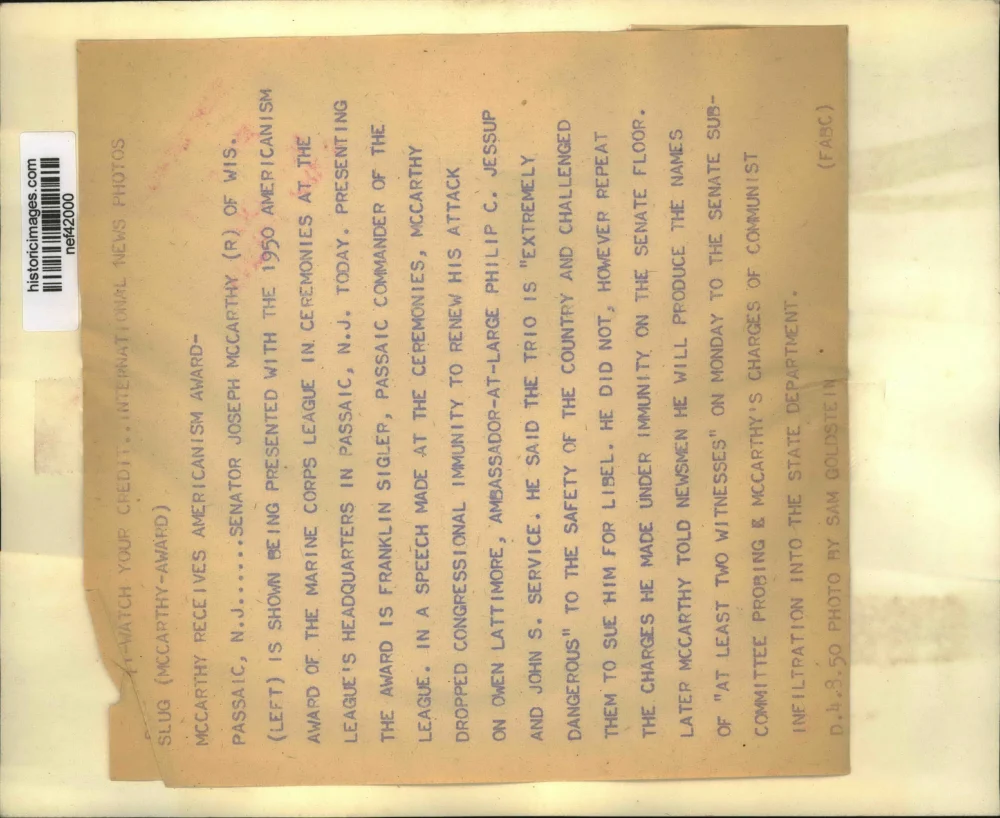 historicimages.com
nef42000
-WATCH YOUR CREDIT...INTERNATIONAL NEWS PHOTOS
SLUG (MCCARTHY-AWARD)
MCCARTHY RECEIVES AMERICANISM AWARD-
PASSAIC, N.J.......SENATOR JOSEPH MCCARTHY (R) OF WIS.
(LEFT) IS SHOWN BEING PRESENTED WITH THE 1950 AMERICANISM
AWARD OF THE MARINE CORPS LEAGUE IN CEREMONIES AT THE
LEAGUE'S HEADQUARTERS IN PASSAIC, N.J. TODAY. PRESENTING
THE AWARD IS FRANKLIN SIGLER, PASSAIC COMMANDER OF THE
LEAGUE. IN A SPEECH MADE AT THE CEREMONIES, MCCARTHY
DROPPED CONGRESSIONAL IMMUNITY TO RENEW HIS ATTACK
ON OWEN LATTIMORE, AMBASSADOR-AT-LARGE PHILIP C. JESSUP
AND JOHN S. SERVICE. HE SAID THE TRIO IS "EXTREMELY
DANGEROUS" TO THE SAFETY OF THE COUNTRY AND CHALLENGED
THEM TO SUE HIM FOR LIBEL. HE DID NOT, HOWEVER REPEAT
THE CHARGES HE MADE UNDER IMMUNITY ON THE SENATE FLOOR.
LATER MCCARTHY TOLD NEWSMEN HE WILL PRODUCE THE NAMES
OF "AT LEAST TWO WITNESSES" ON MONDAY TO THE SENATE SUB-
COMMITTEE PROBING & MCCARTHY'S CHARGES OF COMMUNIST
INFILTRATION INTO THE STATE DEPARTMENT.
D.4.8.50 PHOTO BY SAM GOLDSTEIN (FABC)